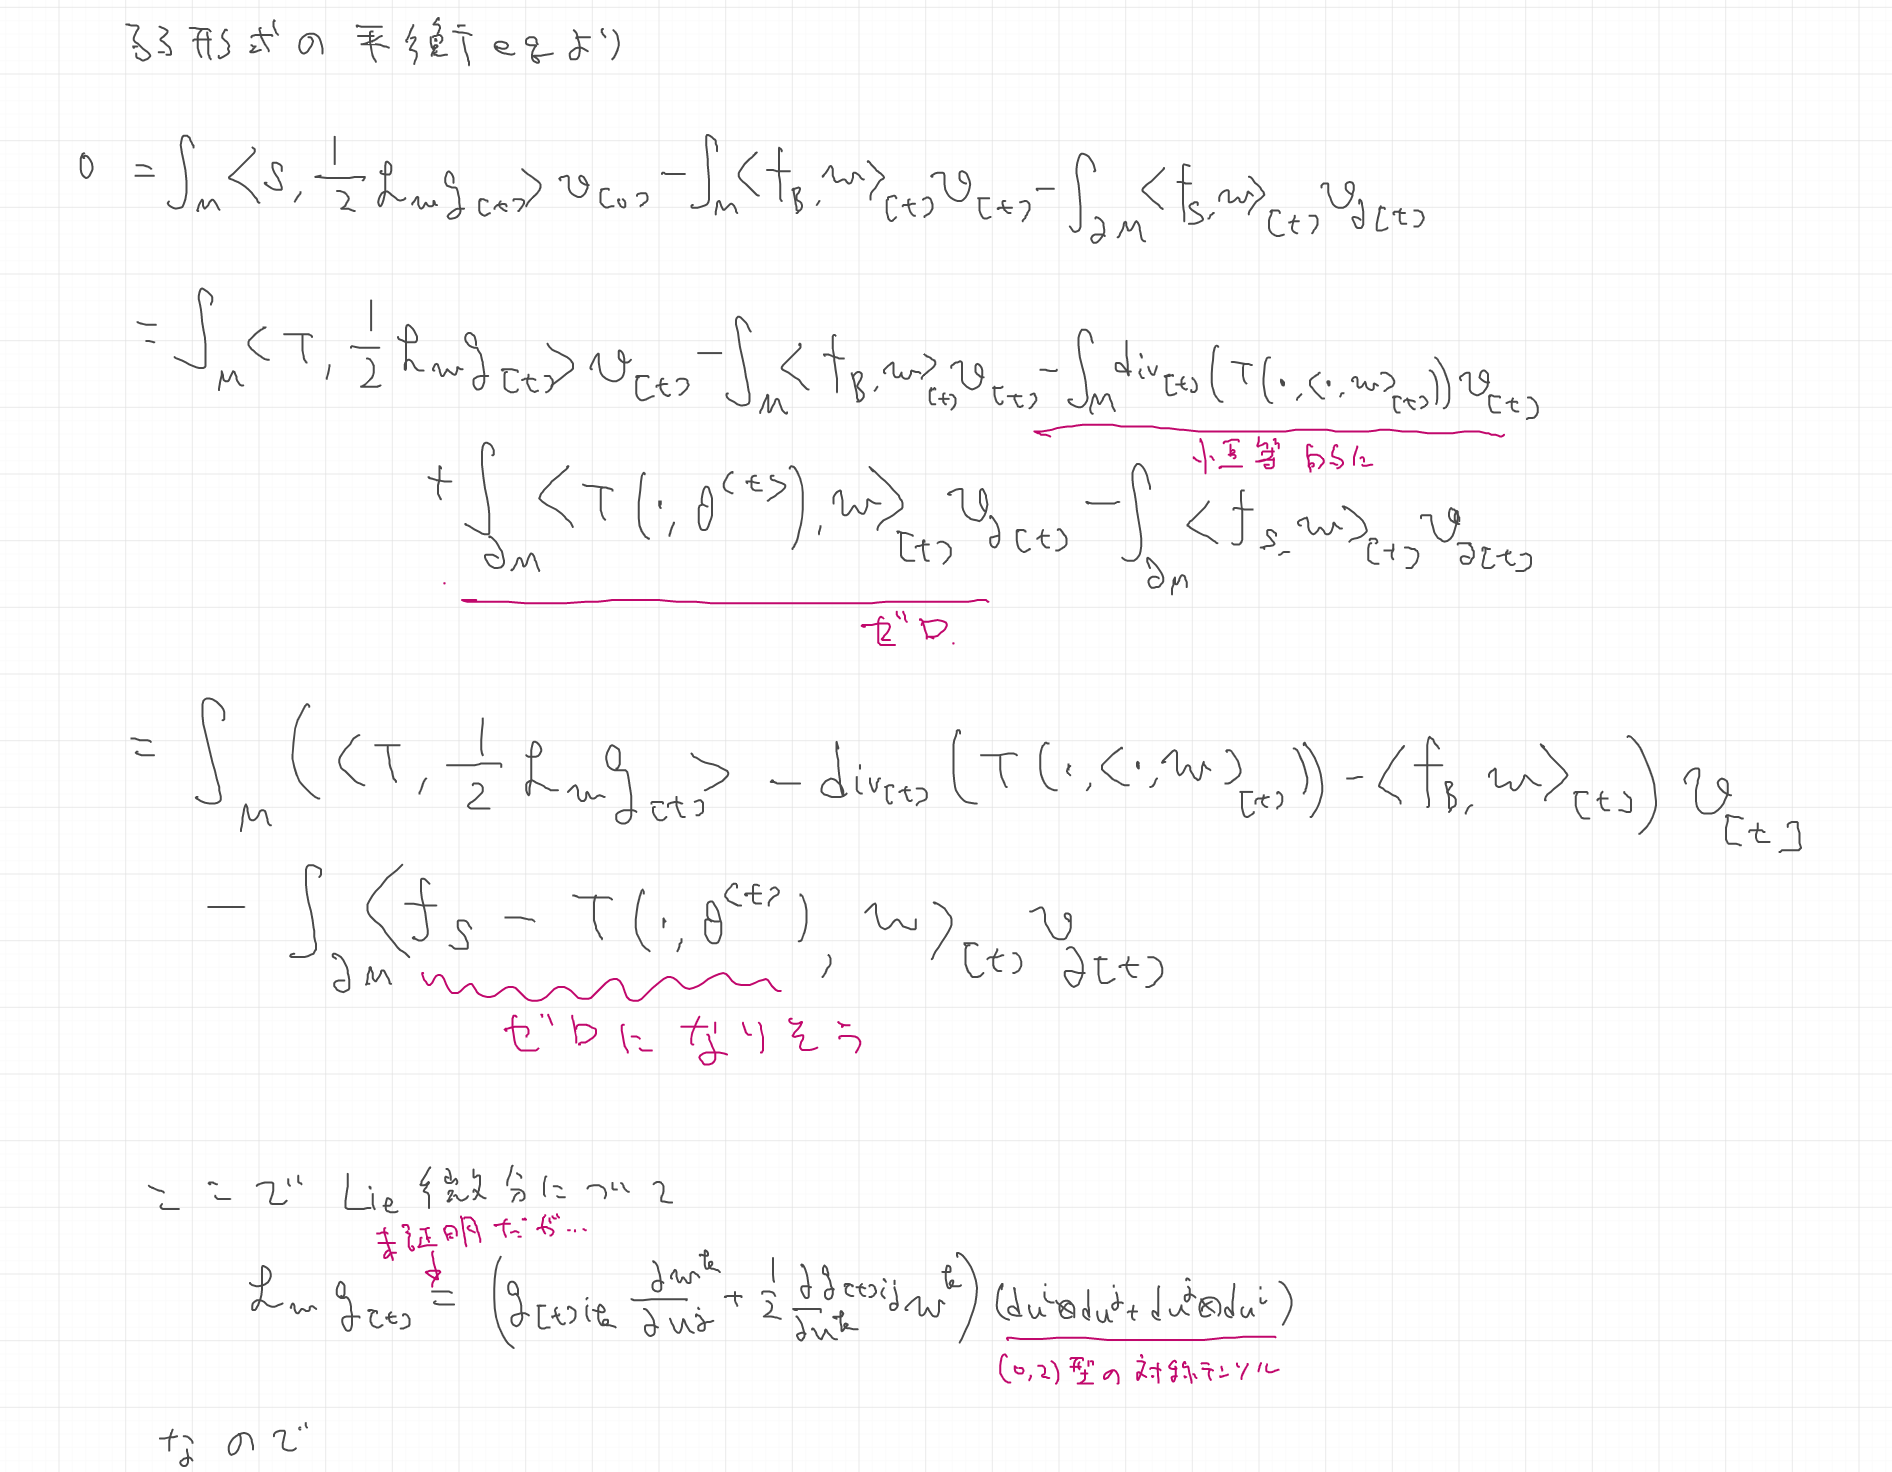 弱形式の平衡eqより
0 = ∫_M <S, 1/2 ℒ_w g_[t]> υ_[0] − ∫_M <f_B, w>_[t] υ_[t] − ∫_∂M <f_S, w>_[t] υ_∂[t]
= ∫_M <T, 1/2 ℒ_w g_[t]> υ_[t] − ∫_M <f_B, w>_[t] υ_[t] − ∫_M div_[t] (T(·, <·, w>_[t])) υ_[t]
らに
+ ∫_∂M <T(·, θ^[t]), w>_[t] υ_∂[t] − ∫_∂M <f_S, w>_[t] υ_∂[t]
ゼロ.
= ∫_M (<T, 1/2 ℒ_w g_[t]> − div_[t] (T(·, <·, w>_[t])) − <f_B, w>_[t]) υ_[t]
− ∫_∂M <f_S − T(·, θ^[t]), w>_[t] υ_∂[t]
ゼロになりそう
ここで Lie微分について
未証明だが…
ℒ_w g_[t] = (g_[t]ik ∂w^k/∂u^j + 1/2 ∂g_[t]ij/∂u^k w^k) (du^i⊗du^j + du^j⊗du^i)
(0,2)型の対称テンソル
なので